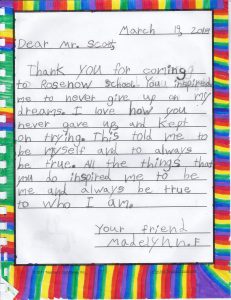 March 19, 2018
Dear Mr. Scott,
Thank you for coming
to Rosenow school. You inspired
me to never give up on my
dreams. I love how you
never gave up and kept
on trying. This told me to
be myself and to always
be true. All the things that
you do inspired me to be
me and always be true
to who I am.
Your friend
Madelynn.F